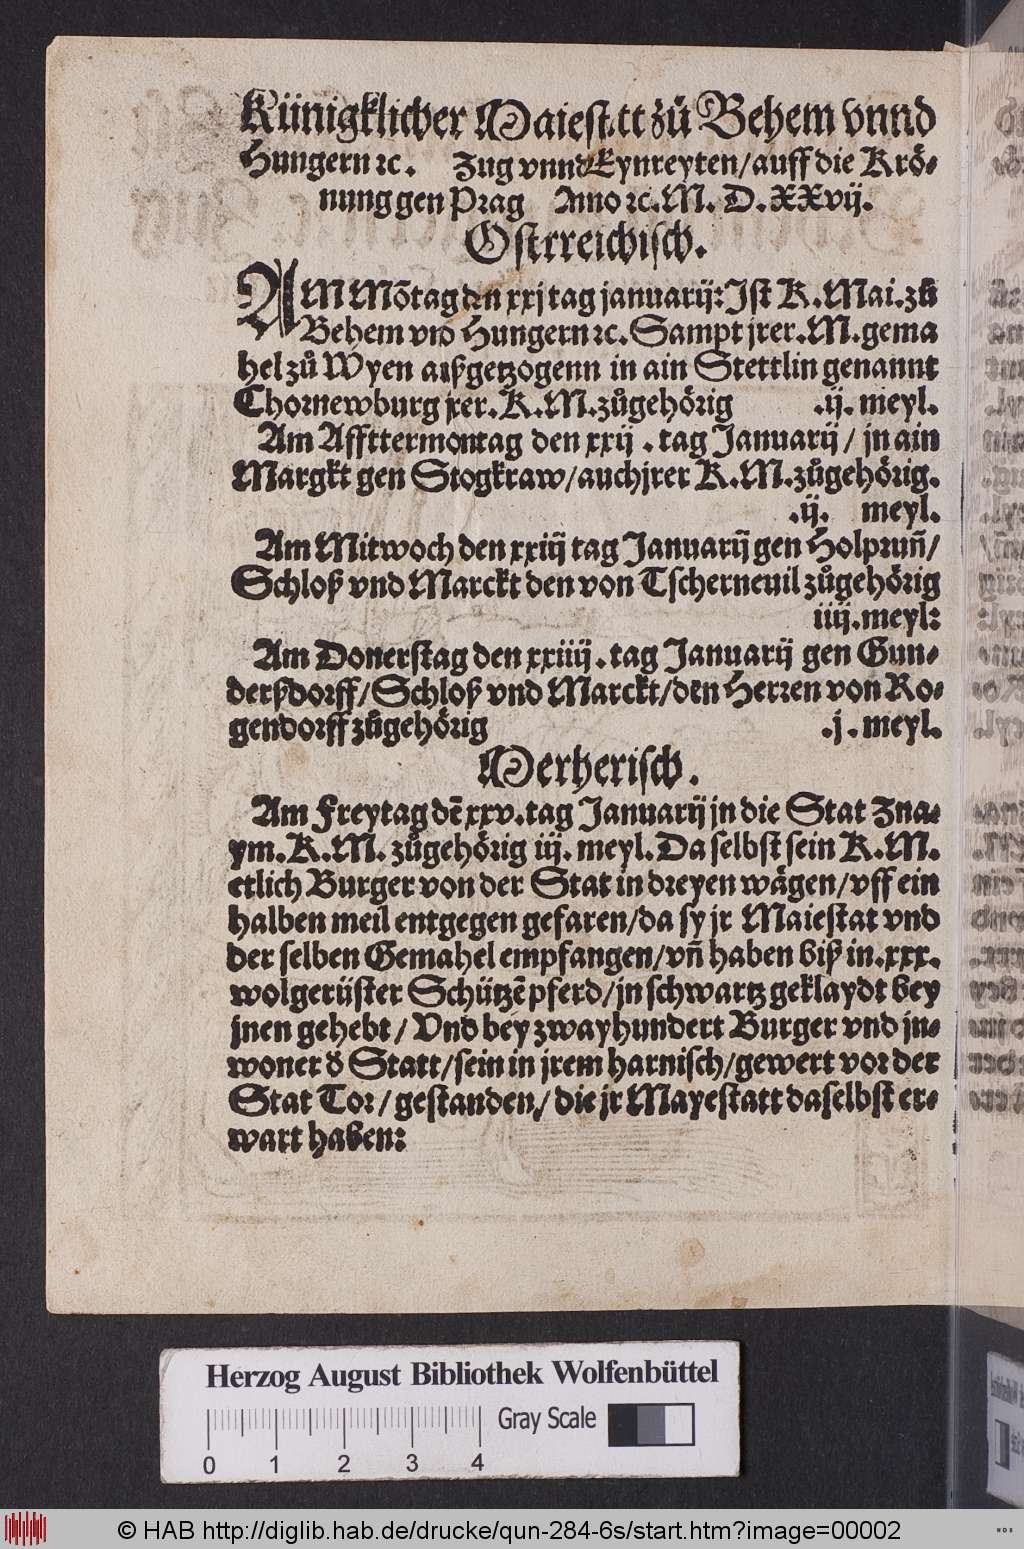 Künigklicher Maiestatt zů Behem vnnd
Hungern ꝛc. Zug vnnd Eynreyten/auff die Krö⸗
nung gen Prag Anno ꝛc. M. D. XXvij.
Ostrreichisch.
AM Mõtag den xxj tag januarij: Ist K. Mai. zů
Behem vnd Hungern ꝛc. Sampt jrer. M. gema
hel zů Wyen außgetzogenn in ain Stettlin genannt
Chornewburg jrer. K. M. zůgehörig .ij. meyl.
Am Affttermontag den xxij . tag Januarij / jn ain
Margkt gen Stogkraw/auch jrer K. M. zůgehörig.
.ij. meyl.
Am Mitwoch den xxiij tag Januarij gen Holprun̄/
Schloß vnd Marckt den von Tscherneuil zůgehörig
iiij. meyl:
Am Donerstag den xxiiij . tag Januarij gen Gun⸗
derßdorff/Schloß vnd Marckt/den Herren von Ro⸗
gendorff zůgehörig .j. meyl.
Merherisch.
Am Freytag dē xxv. tag Januarij jn die Stat Zna⸗
ym. K. M. zůgehörig iij. meyl. Da selbst sein K. M.
etlich Burger von der Stat in dreyen wägen/vff ein
halben meil entgegen gefaren/da sy jr Maiestat vnd
der selben Gemahel empfangen/vn̄ haben biß in .xxx.
wolgerüster Schützē pferd/jn schwartz geklaydt bey
jnen gehebt/ Vnd bey zwayhundert Burger vnd jn⸗
woner d̄ Statt/sein in jrem harnisch/gewert vor der
Stat Tor/ gestanden/ die jr Mayestatt daselbst er⸗
wart haben:
Herzog August Bibliothek Wolfenbüttel
Gray Scale
0 1 2 3 4
© HAB http://diglib.hab.de/drucke/qun-284-6s/start.htm?image=00002